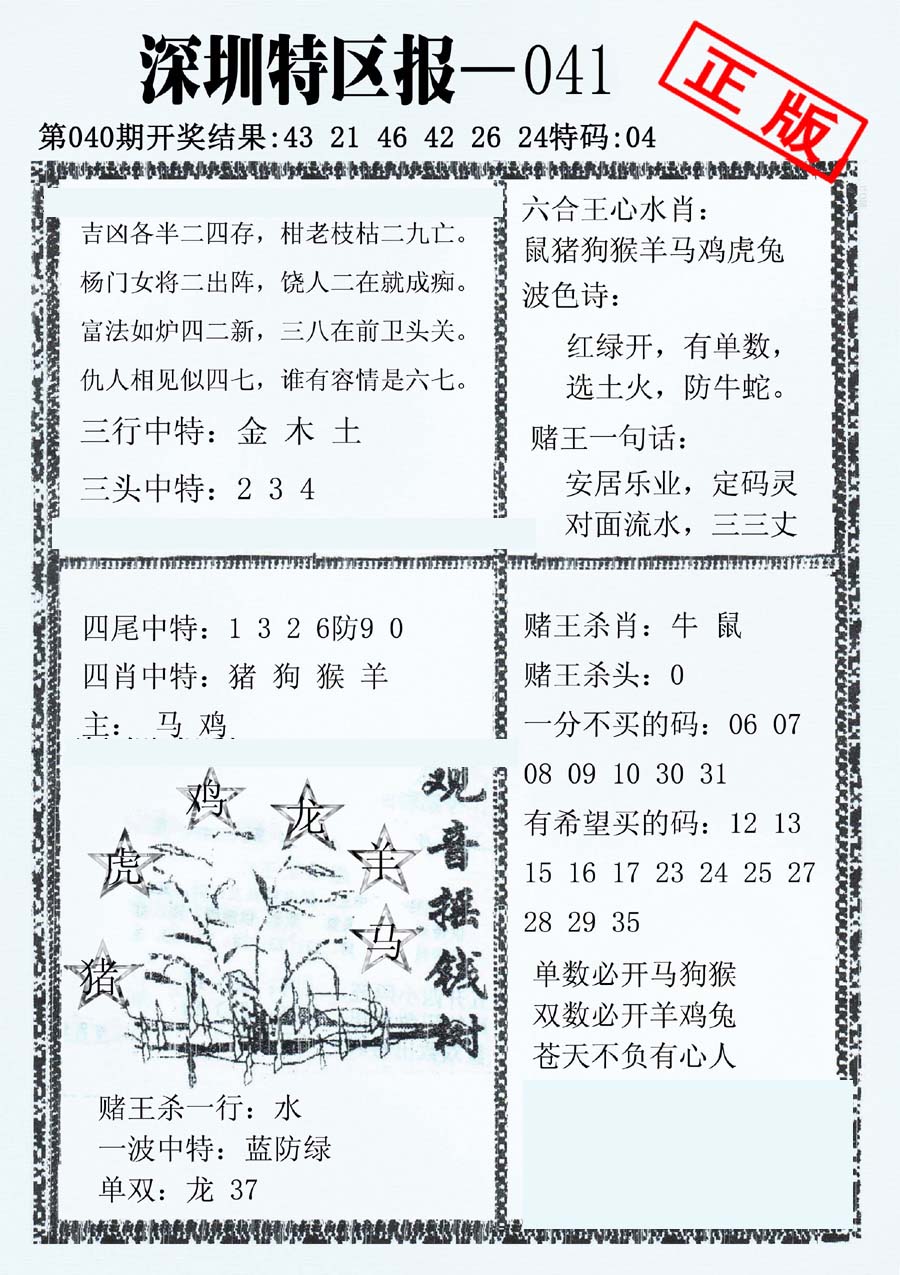 深圳特区报—041
正版
第040期开奖结果:43 21 46 42 26 24特码:04
吉凶各半二四存，柑老枝枯二九亡。
杨门女将二出阵，饶人二在就成痴。
富法如炉四二新，三八在前卫头关。
仇人相见似四七，谁有容情是六七。
三行中特：金 木 土
三头中特：2 3 4
六合王心水肖：
鼠猪狗猴羊马鸡虎兔
波色诗：
红绿开，有单数，
选土火，防牛蛇。
赌王一句话：
安居乐业，定码灵
对面流水，三三丈
四尾中特：1 3 2 6防9 0
四肖中特：猪 狗 猴 羊
主： 马 鸡
鸡
龙
虎
羊
马
猪
观音摇钱树
赌王杀一行：水
一波中特：蓝防绿
单双：龙 37
赌王杀肖：牛 鼠
赌王杀头：0
一分不买的码：06 07
08 09 10 30 31
有希望买的码：12 13
15 16 17 23 24 25 27
28 29 35
单数必开马狗猴
双数必开羊鸡兔
苍天不负有心人